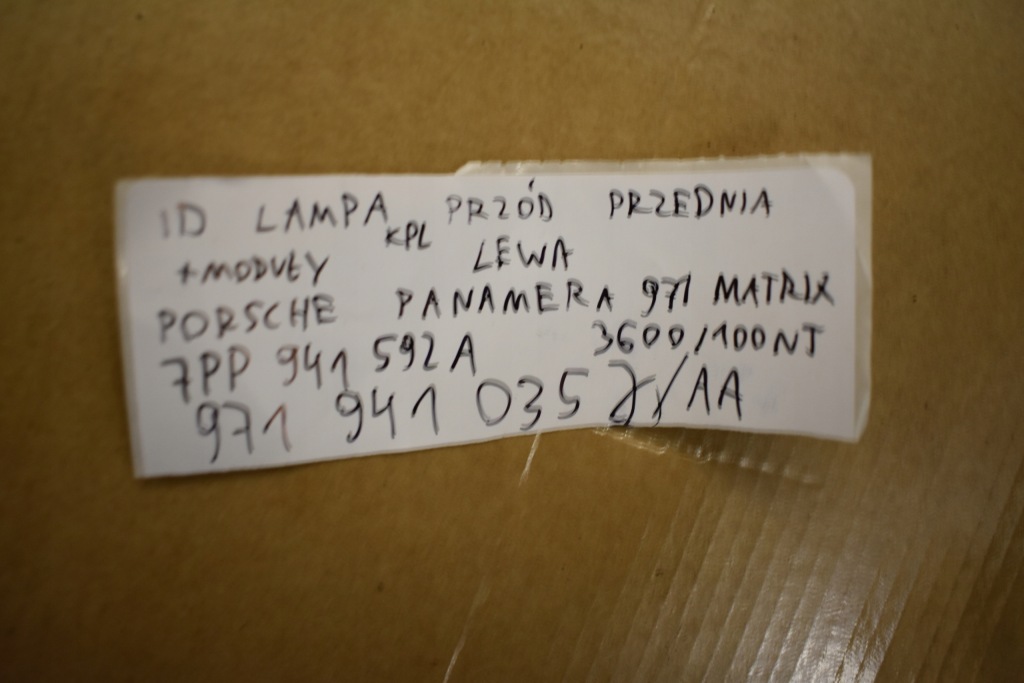 ID LAMPA KPL PRZÓD PRZEDNIA
+MODUŁY LEWA
PORSCHE PANAMERA 971 MATRIX
7PP 941 592A 3600/100NT
971 941 035 /AA